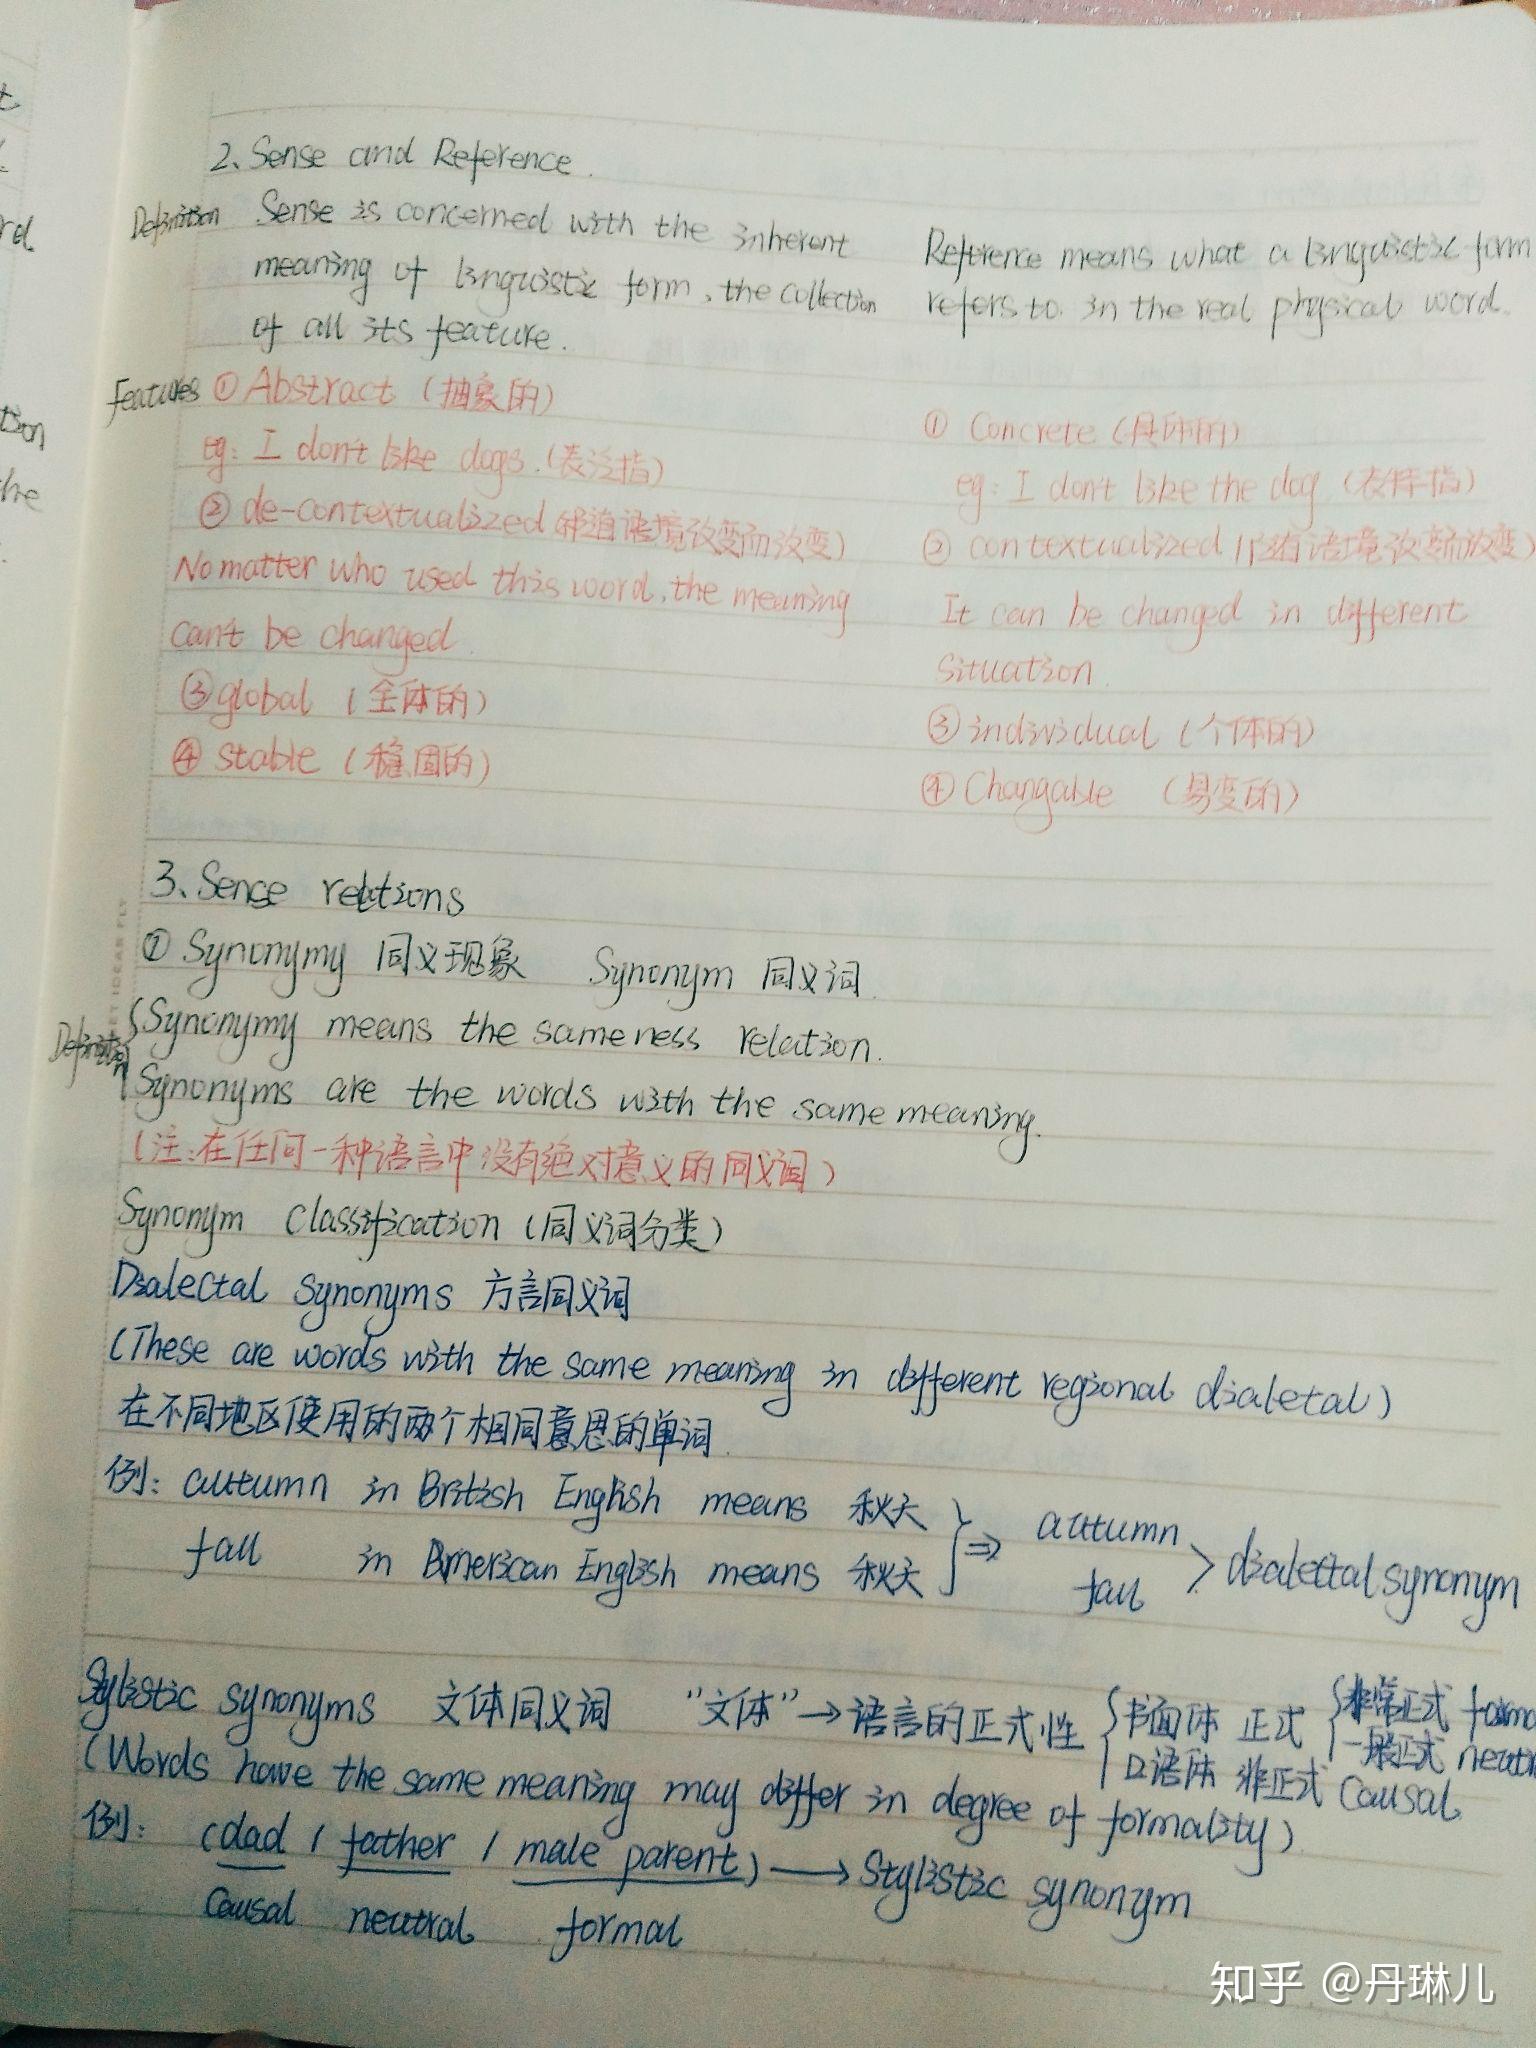 2、Sense and Reference.
Definition Sense is concerned with the inherent
meaning of linguistic form, the collection
of all its feature.
Reference means what a linguistic form
refers to in the real physical word.
Features ① Abstract (抽象的)
eg: I don't like dogs. (表泛指)
② de-contextualized 语境改变而改变)
No matter who used this word, the meaning
can't be changed.
③ global (全体的)
④ stable (稳固的)
① Concrete (具体的)
eg: I don't like the dog (表特指)
② contextualized 语境改变而改变)
It can be changed in different
situation.
③ individual (个体的)
④ Changable (易变的)
3、Sense relations
① Synonymy 同义现象 Synonym 同义词
Definition {Synonymy means the sameness relation.
Synonyms are the words with the same meaning.
(注:在任何一种语言中没有绝对意义的同义词)
Synonym Classification (同义词分类)
Dialectal Synonyms 方言同义词
(These are words with the same meaning in different regional dialetal)
在不同地区使用的两个相同意思的单词
例: autumn in British English means 秋天
fall in American English means 秋天
} ⇒ autumn
fall > dialectal synonym
Stylistic synonyms 文体同义词 "文体"→语言的正式性 {书面体 正式 {非常正式
一般正式
口语体 非正式 Causal
(Words have the same meaning may differ in degree of formality)
例: (dad / father / male parent) → Stylistic synonym
Causal neutral formal
知乎 @丹琳儿